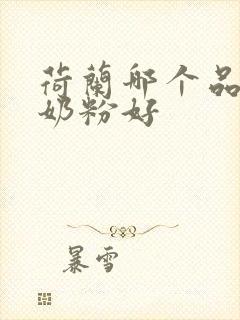 荷蘭哪个品
奶粉好
暴雪